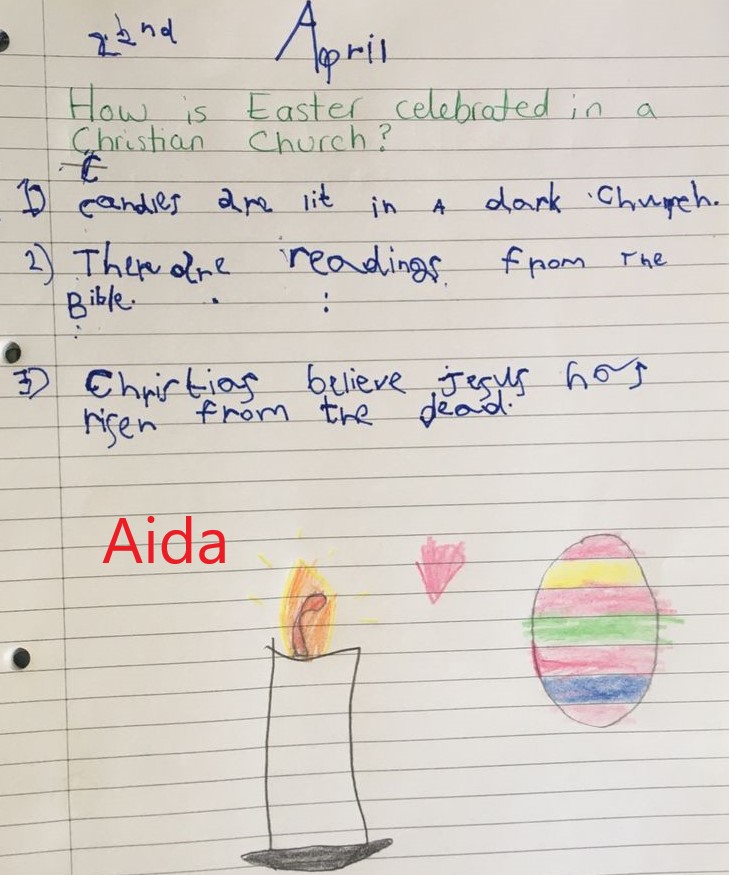 22nd April
How is Easter celebrated in a
Christian Church?
C
1) candles are lit in A dark Church.
2) There are readings from The
Bible.
3) Christias believe Jesus has
risen from the dead.
Aida